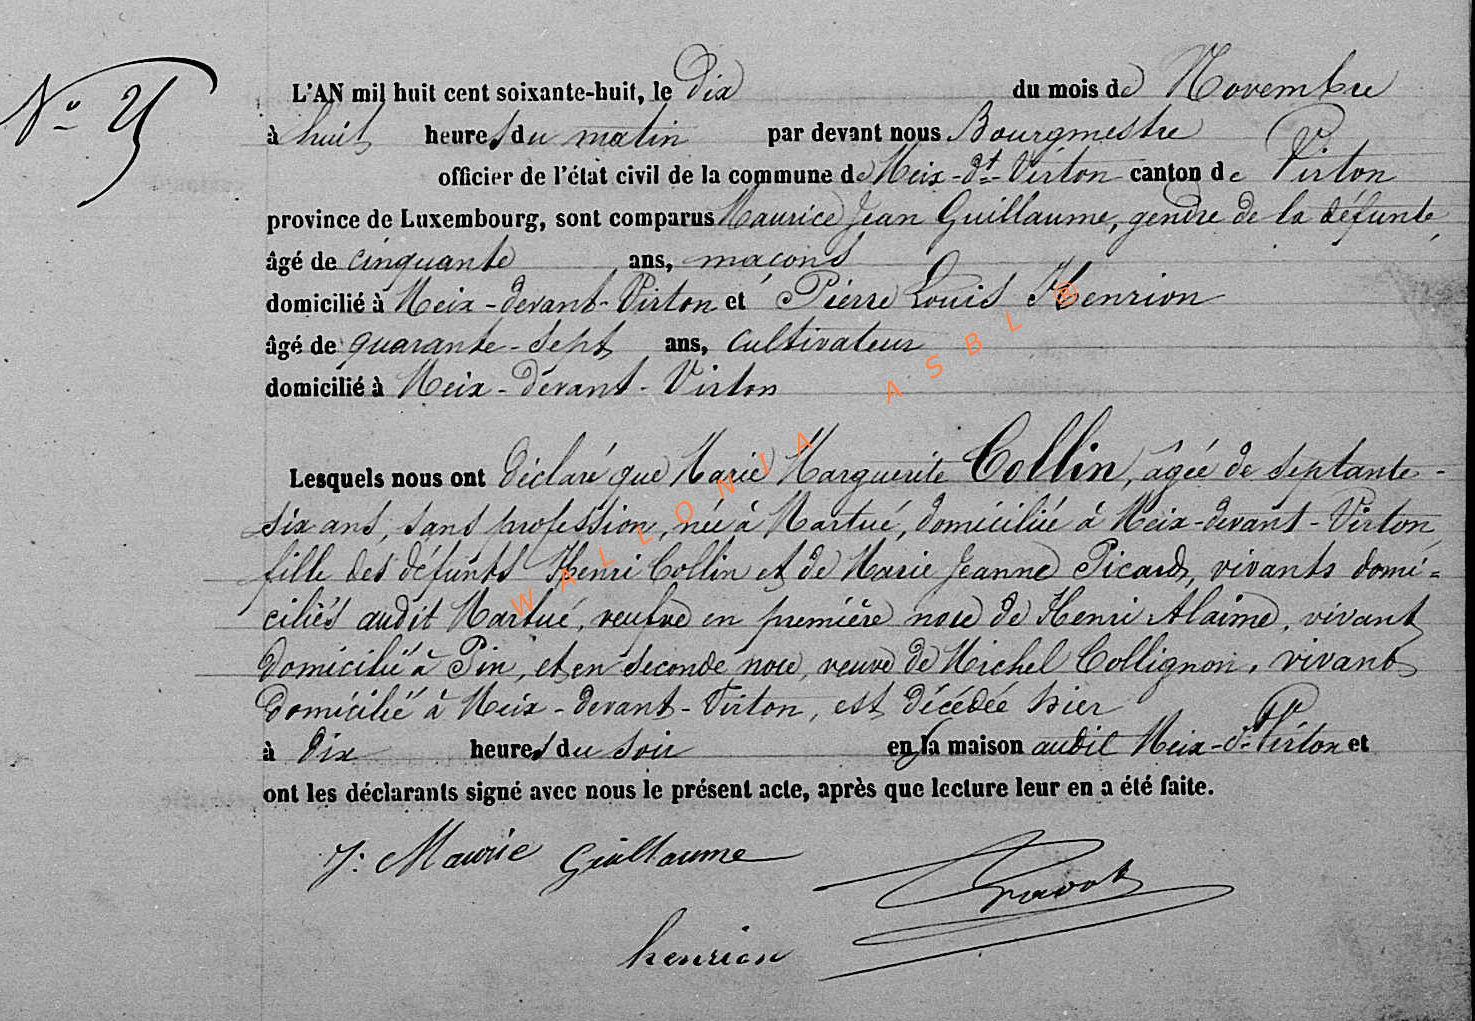 N° 25
L'AN mil huit cent soixante-huit, le dix du mois de Novembre
à huit heures du matin par devant nous Bourgmestre
officier de l'état civil de la commune de Meix-dt-Virton canton de Virton
province de Luxembourg, sont comparus Maurice Jean Guillaume, gendre de la défunte,
âgé de cinquante ans, maçons
domicilié à Meix-devant-Virton et Pierre Louis Henrion
âgé de quarante-sept ans, cultivateur
domicilié à Meix-dévant-Virton
Lesquels nous ont déclaré que Marie Marguerite Collin, âgée de septante-
six ans, sans profession, née à Martué, domiciliée à Meix-devant-Virton,
fille des défunts Henri Collin et de Marie Jeanne Picard, vivants domi=
ciliés audit Martué, veufve en première noce de Henri Alaime, vivant
domicilié à Pin, et en seconde noce, veuve de Michel Collignon, vivant
domicilié à Meix-devant-Virton, est décédée hier
à dix heures du soir en sa maison audit Meix-dt-Virton et
ont les déclarants signé avec nous le présent acte, après que lecture leur en a été faite.
J: Maurice Guillaume
henrion
WALLONIA ASBL ©